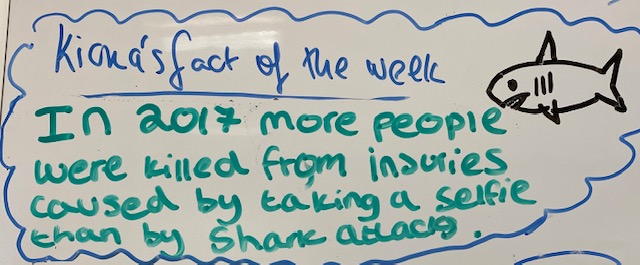 Kiona's fact of the week
In 2017 more people
were killed from injuries
caused by taking a selfie
than by shark attacks.